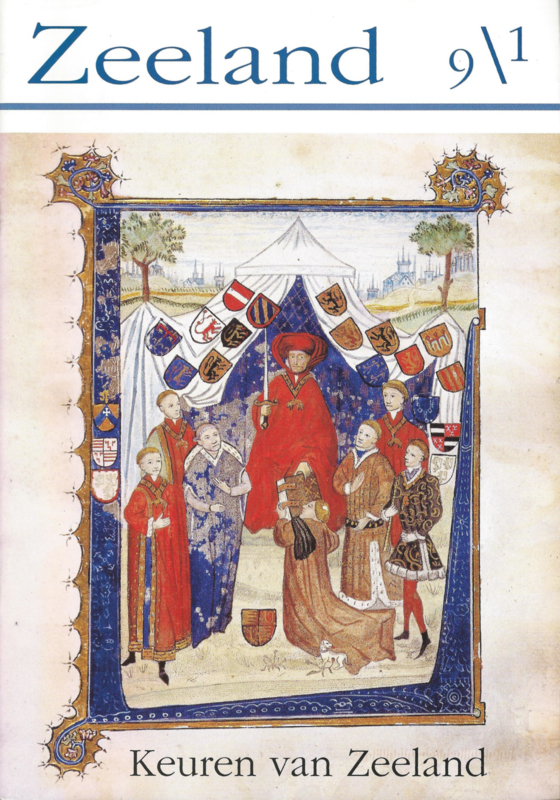 Zeeland 9\1
Keuren van Zeeland